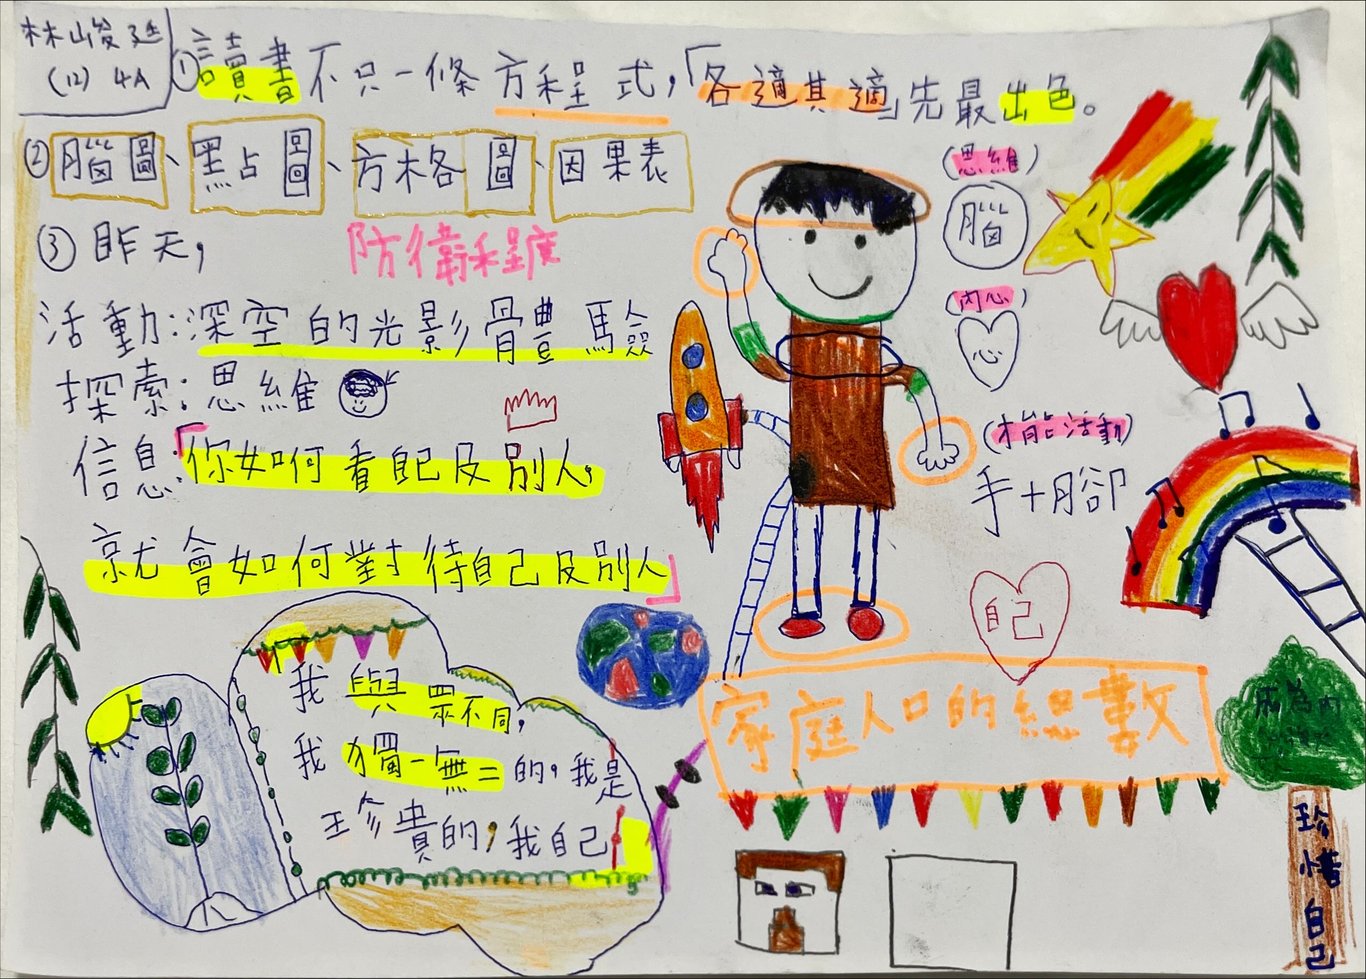 林峻廷
(12) 4A
①讀書不只一條方程式,「各適其適」先最出色。
②腦圖、點占圖、方格圖、因果表
③昨天,
防衛程度
活動:深空的光影體驗
探索:思維
信息:「你如何看自己及別人,
就會如何對待自己及別人」
我與眾不同,
我獨一無二的,我是
珍貴的,我自己
(思維)
腦
(內心)
心
(本能活動)
手+腳
自己
家庭人口的總數
成為
珍惜自己